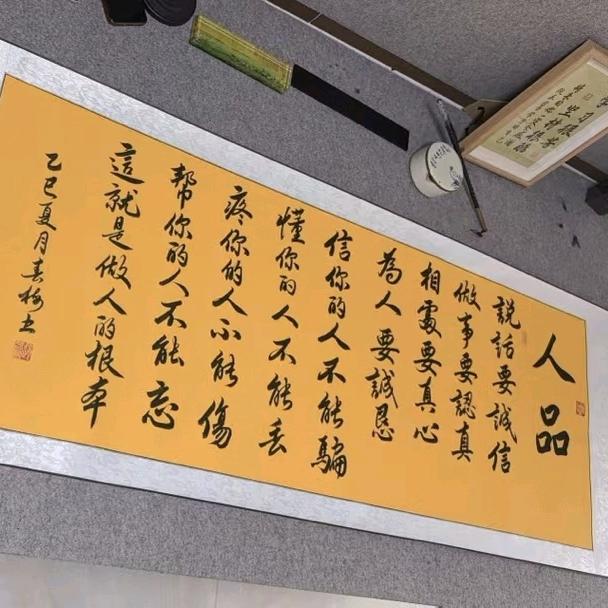 人品
說話要誠信
做事要認真
相處要真心
為人要誠恳
信你的人不能騙
懂你的人不能丢
疼你的人不能傷
幫你的人不能忘
這就是做人的根本
乙巳夏月春梅书